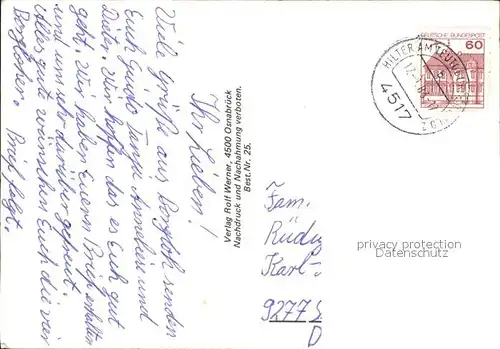 Ihr Lieben!
Viele Grüße aus Borgloh senden
Euch Guido Tanja Annklein und
Dieter. Wir hoffen das es Euch gut
geht. Wir haben Euern Brief erhalten
und uns sehr darüber gefreut.
Alles gute wünschen Euch die vier
Borgloher. Brief folgt.
Verlag Rolf Werner, 4500 Osnabrück
Nachdruck und Nachahmung verboten.
Best. Nr. 25.
DEUTSCHE BUNDESPOST
60
HILTER AM TEUTO
4517
Fam.
Rüdi
Karl-
9277
D
privacy protection
Datenschutz